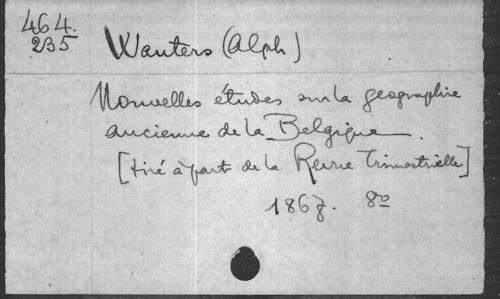 464.
235
Wauters (Alph)
Nouvelles études sur la geographie
ancienne de la Belgique.
[tiré à part de la Revue Trimestrielle]
1867. 8º